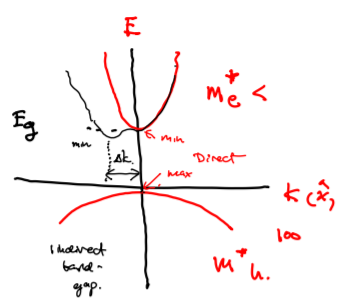 E
m*e <
Eg
min
Δk
min
Direct
max
k (x̂,
100
m*h.
indirect
band-
gap.